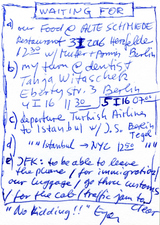 WAITING FOR
a) our Food @ ALTE SCHMIEDE
Restaurant 3 I 206
1230 w/ Berlin
b) my turn @ dentist
Tanja Witaschek
Ebertystr. 3 Berlin
4 I 16 11 30 5 I 16
c) departure Turkish Airlines
to Istanbul w/ J.S. Berlin
Tegel
d) " Istanbul → NYC 1250 "
e) JFK: to be able to leave
the plane / for immigration/
our luggage / go thru customs
/ for the cab / traffic jam to
"No kidding!!" Eyes Clear